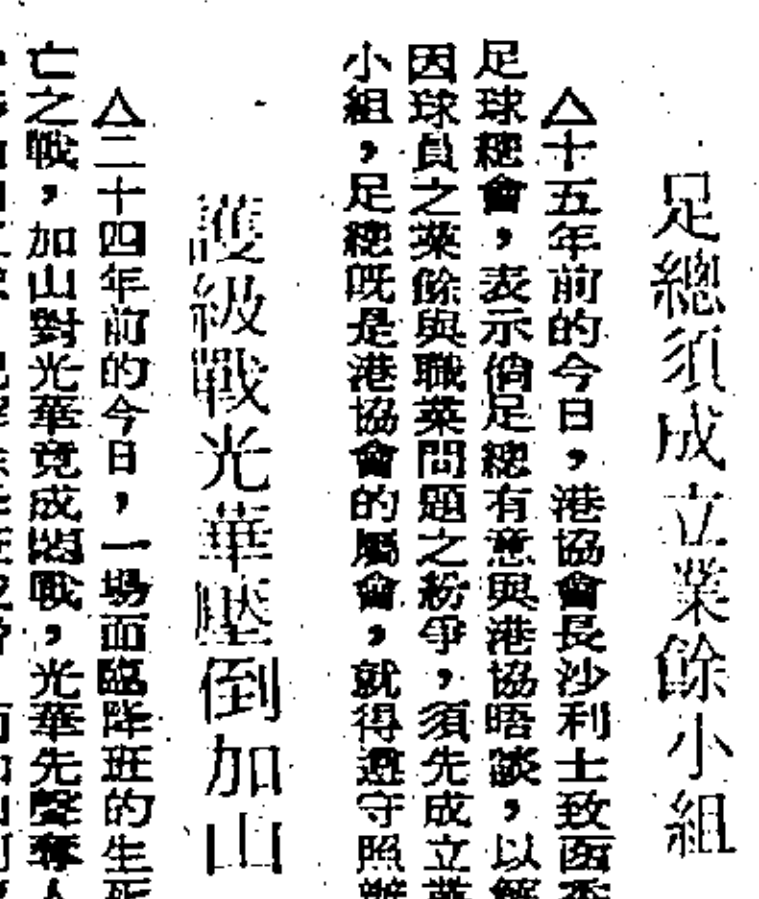 足總須成立業餘小組
△十五年前的今日，港協會長沙利士致函香
足球總會，表示倘足總有意與港協晤談，以解
因球員之業餘與職業問題之紛爭，須先成立業
小組，足總既是港協會的屬會，就得遵守照辦
護級戰光華壓倒加山
△二十四年前的今日，一場面臨降班的生死
亡之戰，加山對光華竟成悶戰，光華先聲奪人